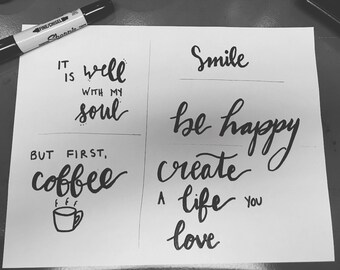 FINE/CHISEL
Sharpie
IT
IS well
WITH MY
soul
Smile
be happy
BUT FIRST,
coffee
create
A life YOU
love